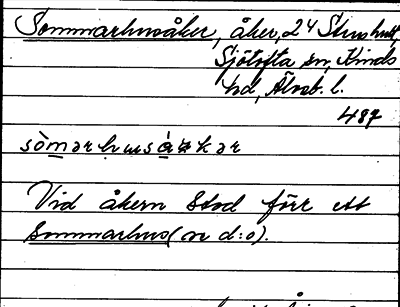 Sommarhusåker, åker, 24 Strushult,
Sjötofta sn, Kinds
hd, Älvsb. l.
487
Vid åkern stod förr ett
sommarhus (se d:o).